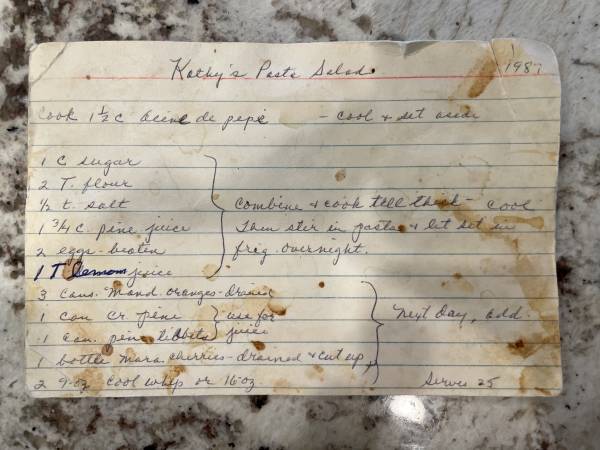 Kathy's Pasta Salad 1987
Cook 1 1/2 C Acine de pepe - cool & set aside
1 C sugar
2 T. flour
1/2 t. salt
1 3/4 C. pine. juice
2 eggs - beaten
1 T lemon juice
Combine & cook till thick - cool
Then stir in pasta & let set in
frig. overnight.
3 cans. Mand. oranges - drained
1 can cr. pine
1 can. pine tidbits
use for
juice
1 bottle Mara. Cherries - drained & cut up,
2 9-oz cool whip or 16 oz
Next day, add.
Serves 25